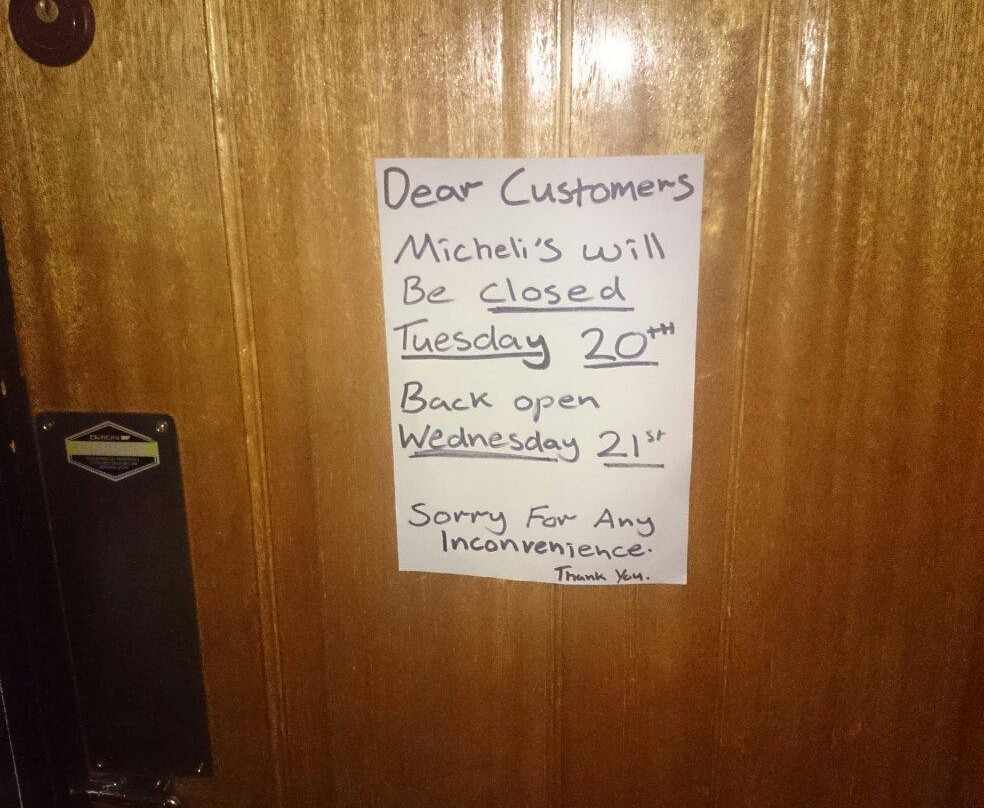 Dear Customers
Micheli's will
Be closed
Tuesday 20TH
Back open
Wednesday 21st
Sorry For Any
Inconvenience.
Thank You.